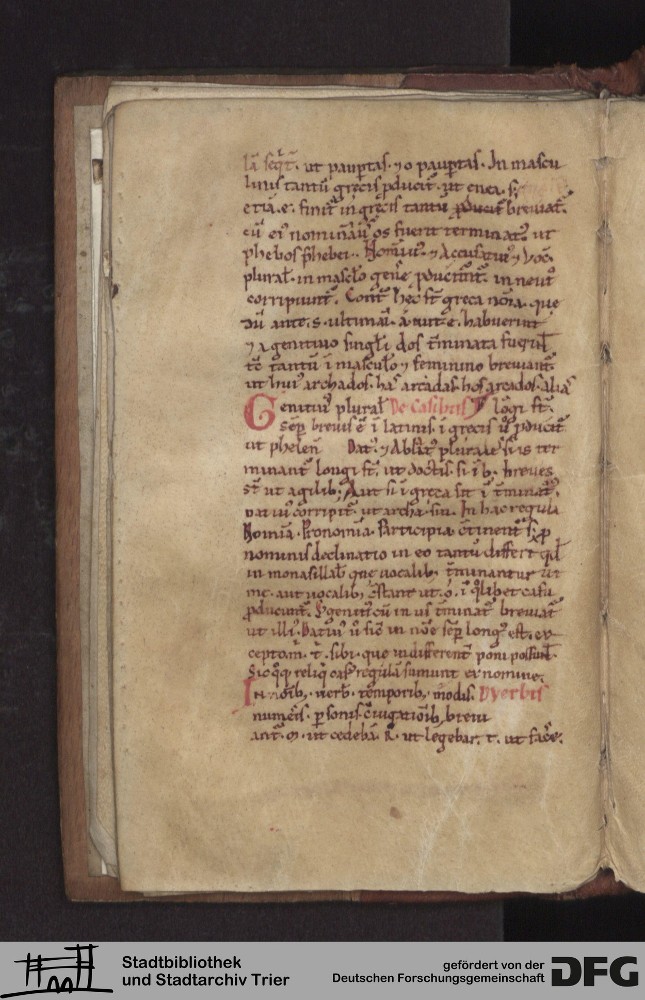 lā seqͥt̄. ut paup̄tas. ⁊ o paup̄tas. In mascu
linis tantū grecis ꝓducit̄. ut enea. s;
etiā. e. finit̄ in grecis tantū breviat̄.
cū ei nominatiu os fuerit terminat. ut
phebos
plural. in masclo gen̄e ꝓducunt̄. in neut
corripiunt̄. Cont̄ hec st̄ greca nōīa. que
ante. s. ultimā. a. aut. e. habuerint
⁊ a genitivo singl̄i dos t̄minata
tē tantū ī masculo ⁊ feminino breviant̄
ut hui archados. has arcadas. hos arcados. alias
Genitiu plural De Casibus lōgi st̄.
Semp brevis ē ī latinis. ī grecis u ꝓducit̄.
ut phelen̄ Dat. ⁊ Ablat plurales si is ter
minant̄ longi st̄. ut doctis. si ī b; breves
st̄ ut agilib; Aut si ī greca sit ī t̄minat.
corripit̄. ut archasin. In hac regula
Nomina. Pronomina. Participia c̄tinent̄. s; ꝓ
nominis declinatio in eo tantū differt qd̄
in monasillab que vocalib; t̄minantur ut
me. aut vocalib; c̄stant ut. o. ī qlibet casu
ꝓducunt̄. Et genitiu cū in us t̄minat̄ breviat̄
ut illi. Datiuu u sic in nōe semp long est. ex
cepto m̄. t̄. sibi. que indifferent̄ poni possunt.
Sicqꝫ reliqi casꝰ regulā sumunt ex nomine.
In oīb; verb. temporib; modis. D verbis
numeris. psonis. c̄iugationib; brevi
ant̄. m. ut cedebā. R. ut legebar. t. ut
Stadtbibliothek
und Stadtarchiv Trier
gefördert von der
Deutschen Forschungsgemeinschaft
DFG